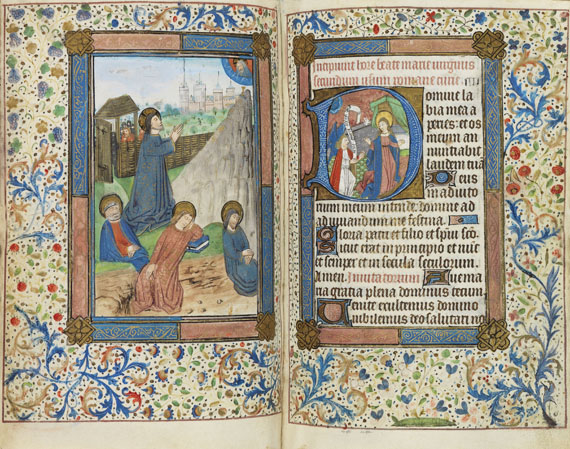 Incipiunt hore beate marie virginis
secundum usum romane curie
Domine la
bia mea a
peries: et os
meum an
nuntiabit
laudem tuã
Deus
in adiuto
rium meum intende. domine ad
adiuvandum me festina.
Gloria patri et filio et spirui sco
Sicut erat in principio et nuc
et semper et in secula seculorum.
Amen. Invitatorium Ave ma
ria gratia plena dominus tecum
Venite exultemus domino
iubilemus deo salutari no